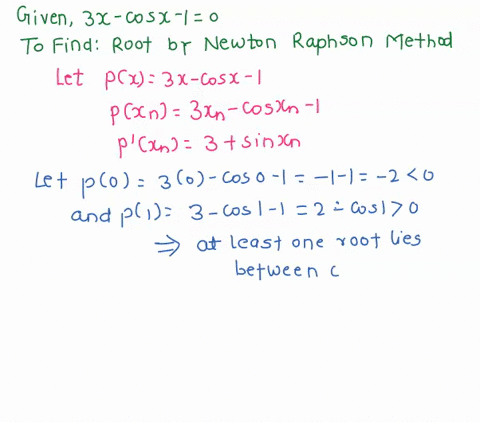 Given, 3x-cosx-1=0
To Find: Root by Newton Raphson Method
Let p(x)= 3x-cosx-1
p(xn)= 3xn-cosxn-1
p'(xn)= 3+sinxn
Let p(0)= 3(0)-cos0-1=-1-1=-2<0
and p(1)= 3-cos1-1=2-cos1>0
⇒ at least one root lies
between c